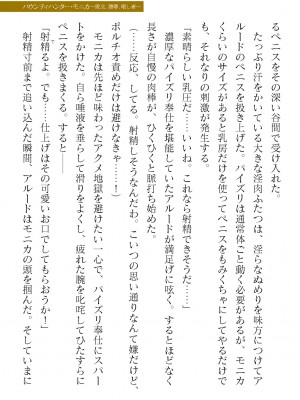 バウンティハンター・モニカ
るペニスをその深い谷間で受け入れた。
たっぷり汗をかいている大きな淫肉ふたつは、淫らなぬめりを味方につけてア
ルードのペニスを扱き上げた。パイズリは通常体ごと動く必要があるが、モニカ
くらいのサイズがあると乳房だけを使ってペニスをもみくちゃにしてやるだけで
も、それなりの刺激が発生する。
「素晴らしい乳圧だ……いいね。これなら射精できそうだ……」
濃厚なパイズリ奉仕を堪能していたアルードが満足げに呟く。するとほどなく
長さが自慢の肉棒が、ひくひくと脈打ち始めた。
(……反応、してる。射精しそうなんだわ。こいつの思い通りなんて嫌だけど、
ポルチオ責めだけは避けなきゃ……！)
モニカは先ほど味わったアクメ地獄を避けたい一心で、パイズリ奉仕にスパー
トをかけた。自ら唾液を垂らして滑りをよくし、疲れた腕を叱咤してひたすらに
ペニスを扱きまくる。すると――
「射精るよ。でも……仕上げはその可愛いお口でしてもらおうか！」
射精寸前まで追い込んだ瞬間、アルードはモニカの頭を掴んだ。そしていまに